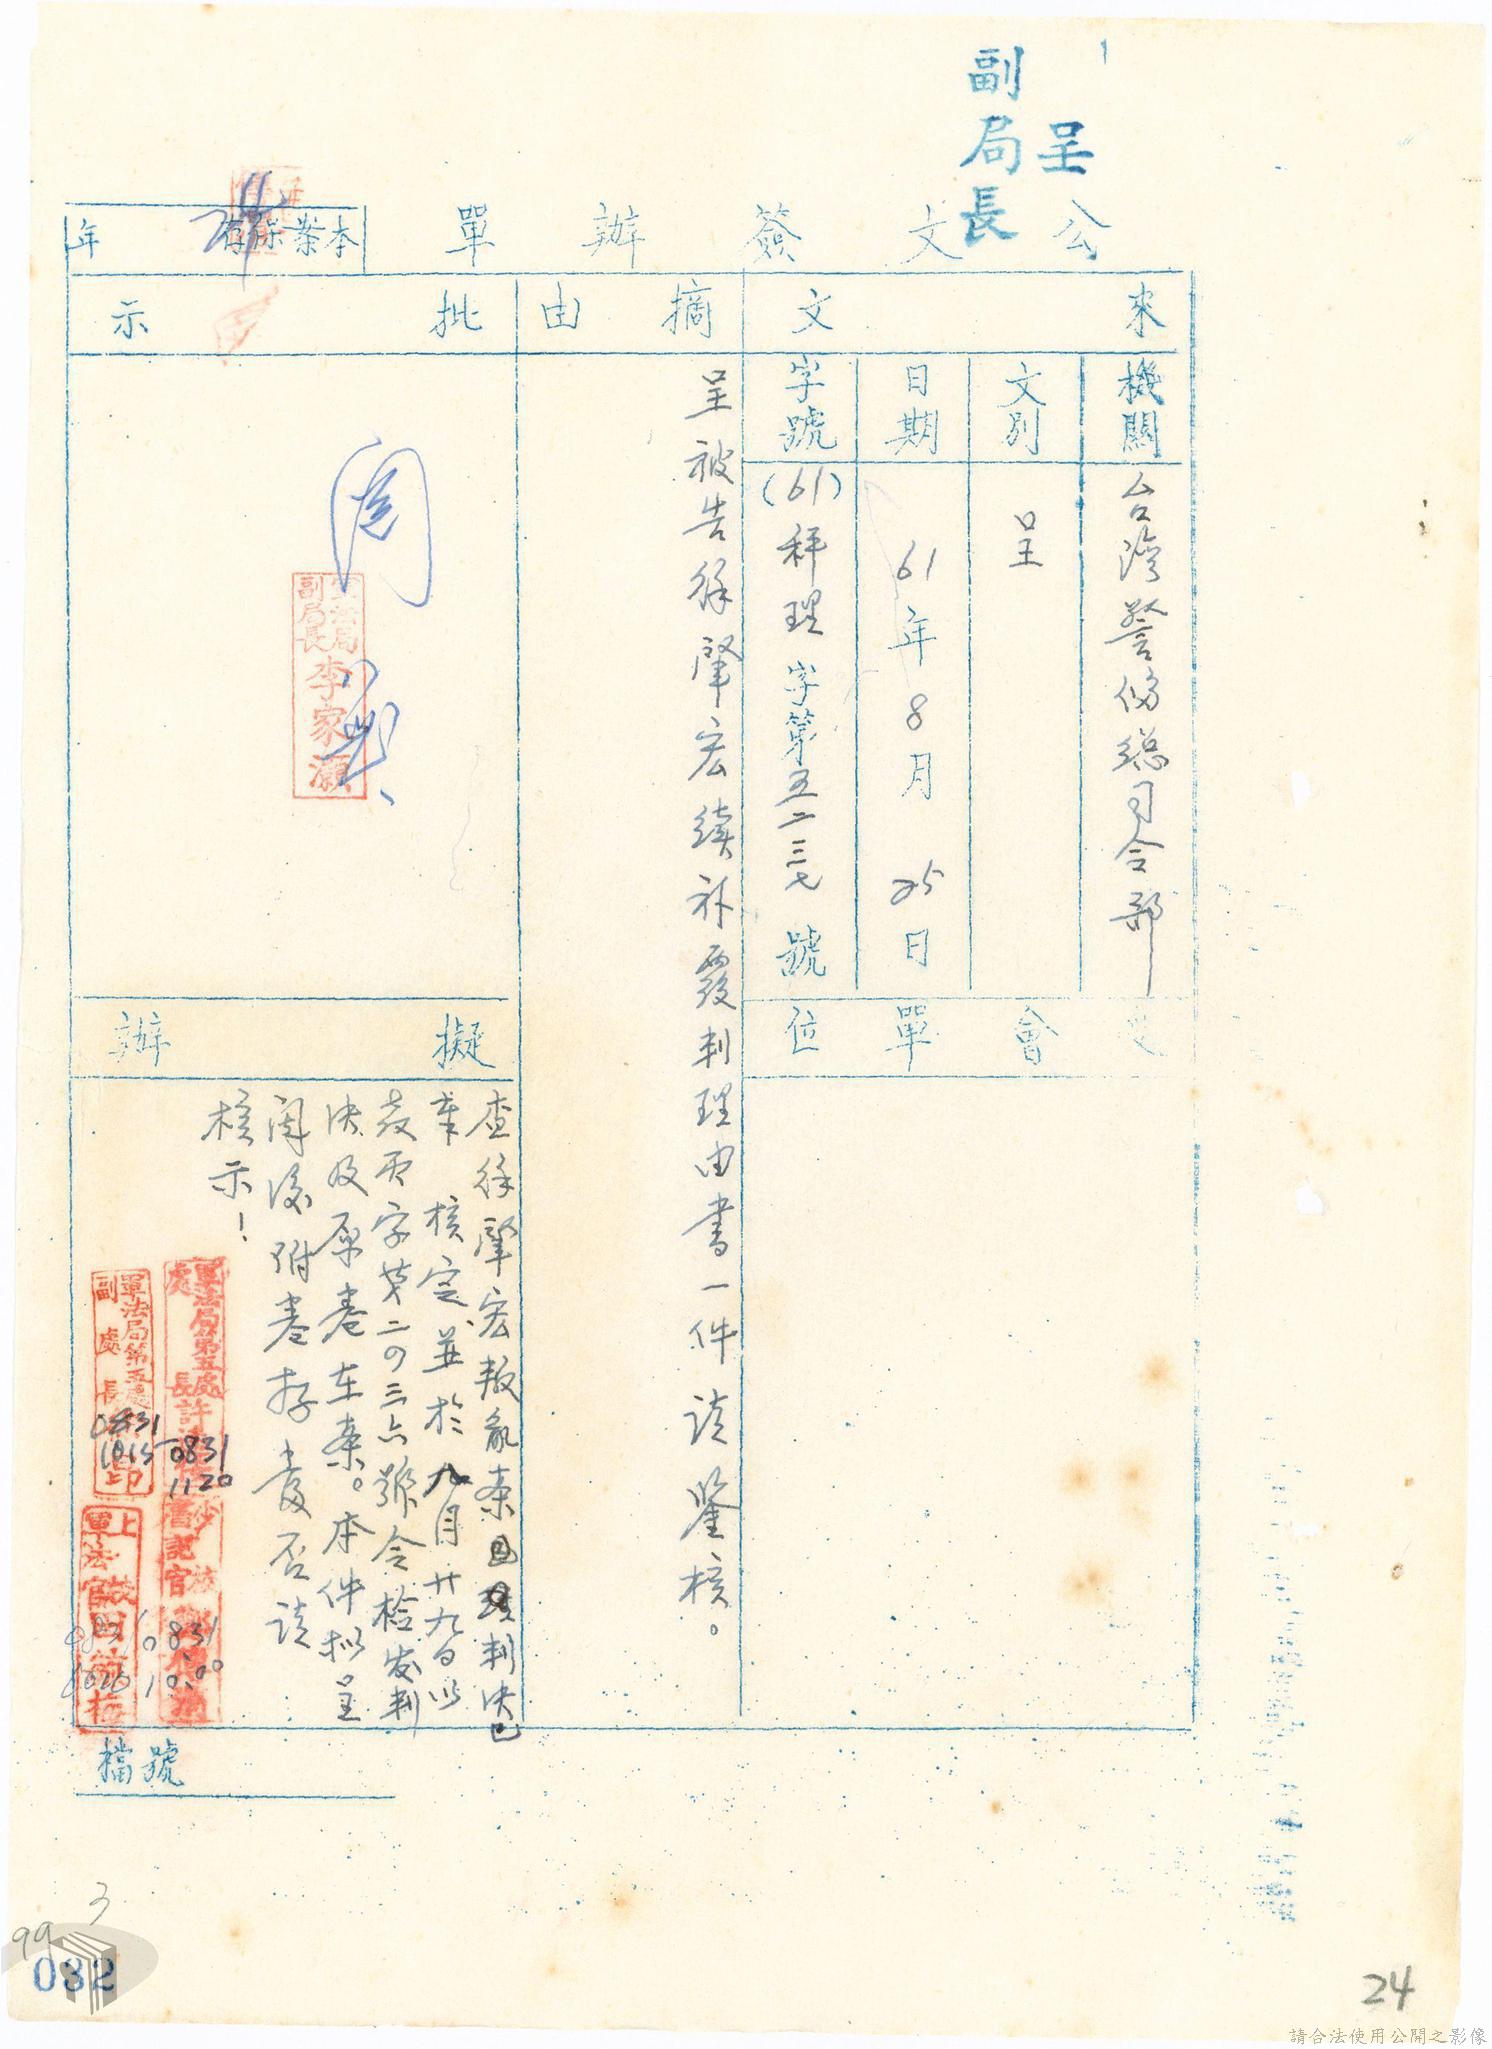 呈
副局長
公文簽辦單
本案保存
年
來文
摘由
批示
機關
台灣警俻總司令部
文別
呈
日期
61年8月25日
字號
(61)秤理字第五二三七號
會單位
呈被告徐肇宏續补覆判理由書一件請鑒核。
閱
軍法局
副局長
李家灝
擬辦
查徐肇宏叛亂案
判決已
奉 核定並於九月廿九日以
字第二四三六號令檢发判
決及原卷在案。本件拟呈
閱後附卷存查當否請
核示!
軍法局第五處
處長
0831
1120
軍法局第五處
副處長
印
0831
1015
書記官
0831
10:00
上校
軍法官
檔號
3
99
032
24
請合法使用公開之影像